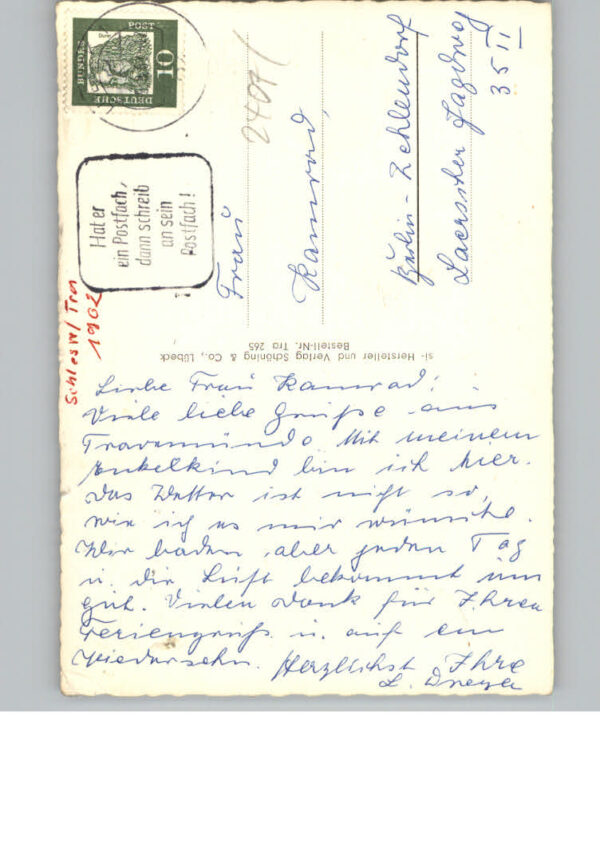 Liebe Frau Kamrad!
Viele liebe Grüße aus
Travemünde. Mit meinem
Enkelkind bin ich hier.
Das Wetter ist nicht so,
wie ich es mir wünsche.
Wir baden aber jeden Tag
u. die Luft bekommt uns
gut. Vielen Dank für Ihren
Feriengruß u. auf ein
Wiedersehn. Herzlichst Ihre
L. Dreyer
Schlesw/Tra
1902
2407/
Frau
Kamrad,
Berlin-Zehlendorf
Jagdweg
35 II
Hat er
ein Postfach,
dann schreib
an sein
Postfach!
DEUTSCHE
BUNDES
POST
10
si- Hersteller und Verlag Schöning & Co., Lübeck
Bestell-Nr. Tra 265